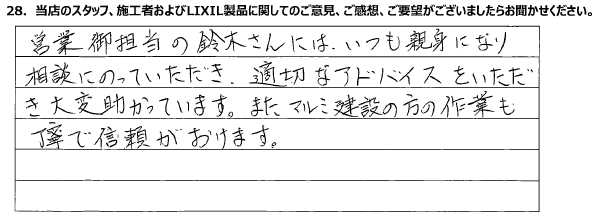 28. 当店のスタッフ、施工者およびLIXIL製品に関してのご意見、ご感想、ご要望がございましたらお聞かせください。
営業御担当の鈴木さんには、いつも親身になり
相談にのっていただき、適切なアドバイスをいただ
き大変助かっています。また マルミ建設の方の作業も
丁寧で信頼がおけます。